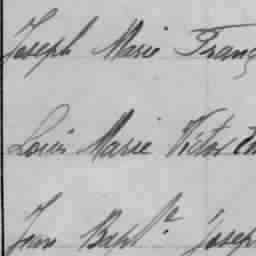 Joseph Marie Franç
Louis Marie Victor Em
Jean Bapte Joseph